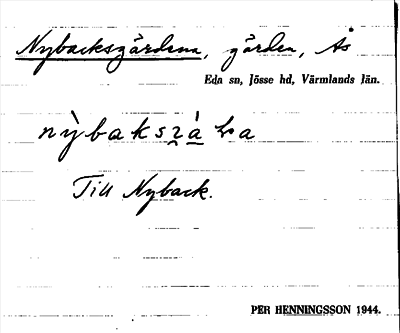 Nybacksgårdena, gården, Ås
Eda sn, Jösse hd, Värmlands län.
Till Nyback.
PER HENNINGSSON 1944.